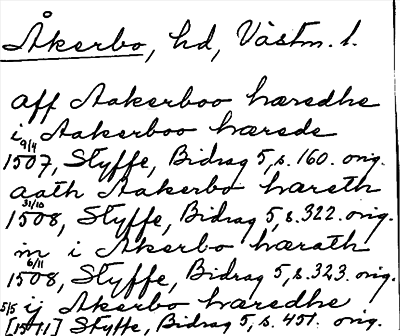 Åkerbo, hd, Västm. l.
aff Aakerboo hæredhe
i Aakerboo hærede
9/4 1507, Styffe, Bidrag 5, s. 160. orig.
aath Aakerbo hærath
31/10 1508, Styffe, Bidrag 5, s. 322. orig.
m i Akerbo hærath
6/11 1508, Styffe, Bidrag 5, s. 323. orig.
ij Akerbo hæredhe
5/5 [1511] Styffe, Bidrag 5, s. 451. orig.